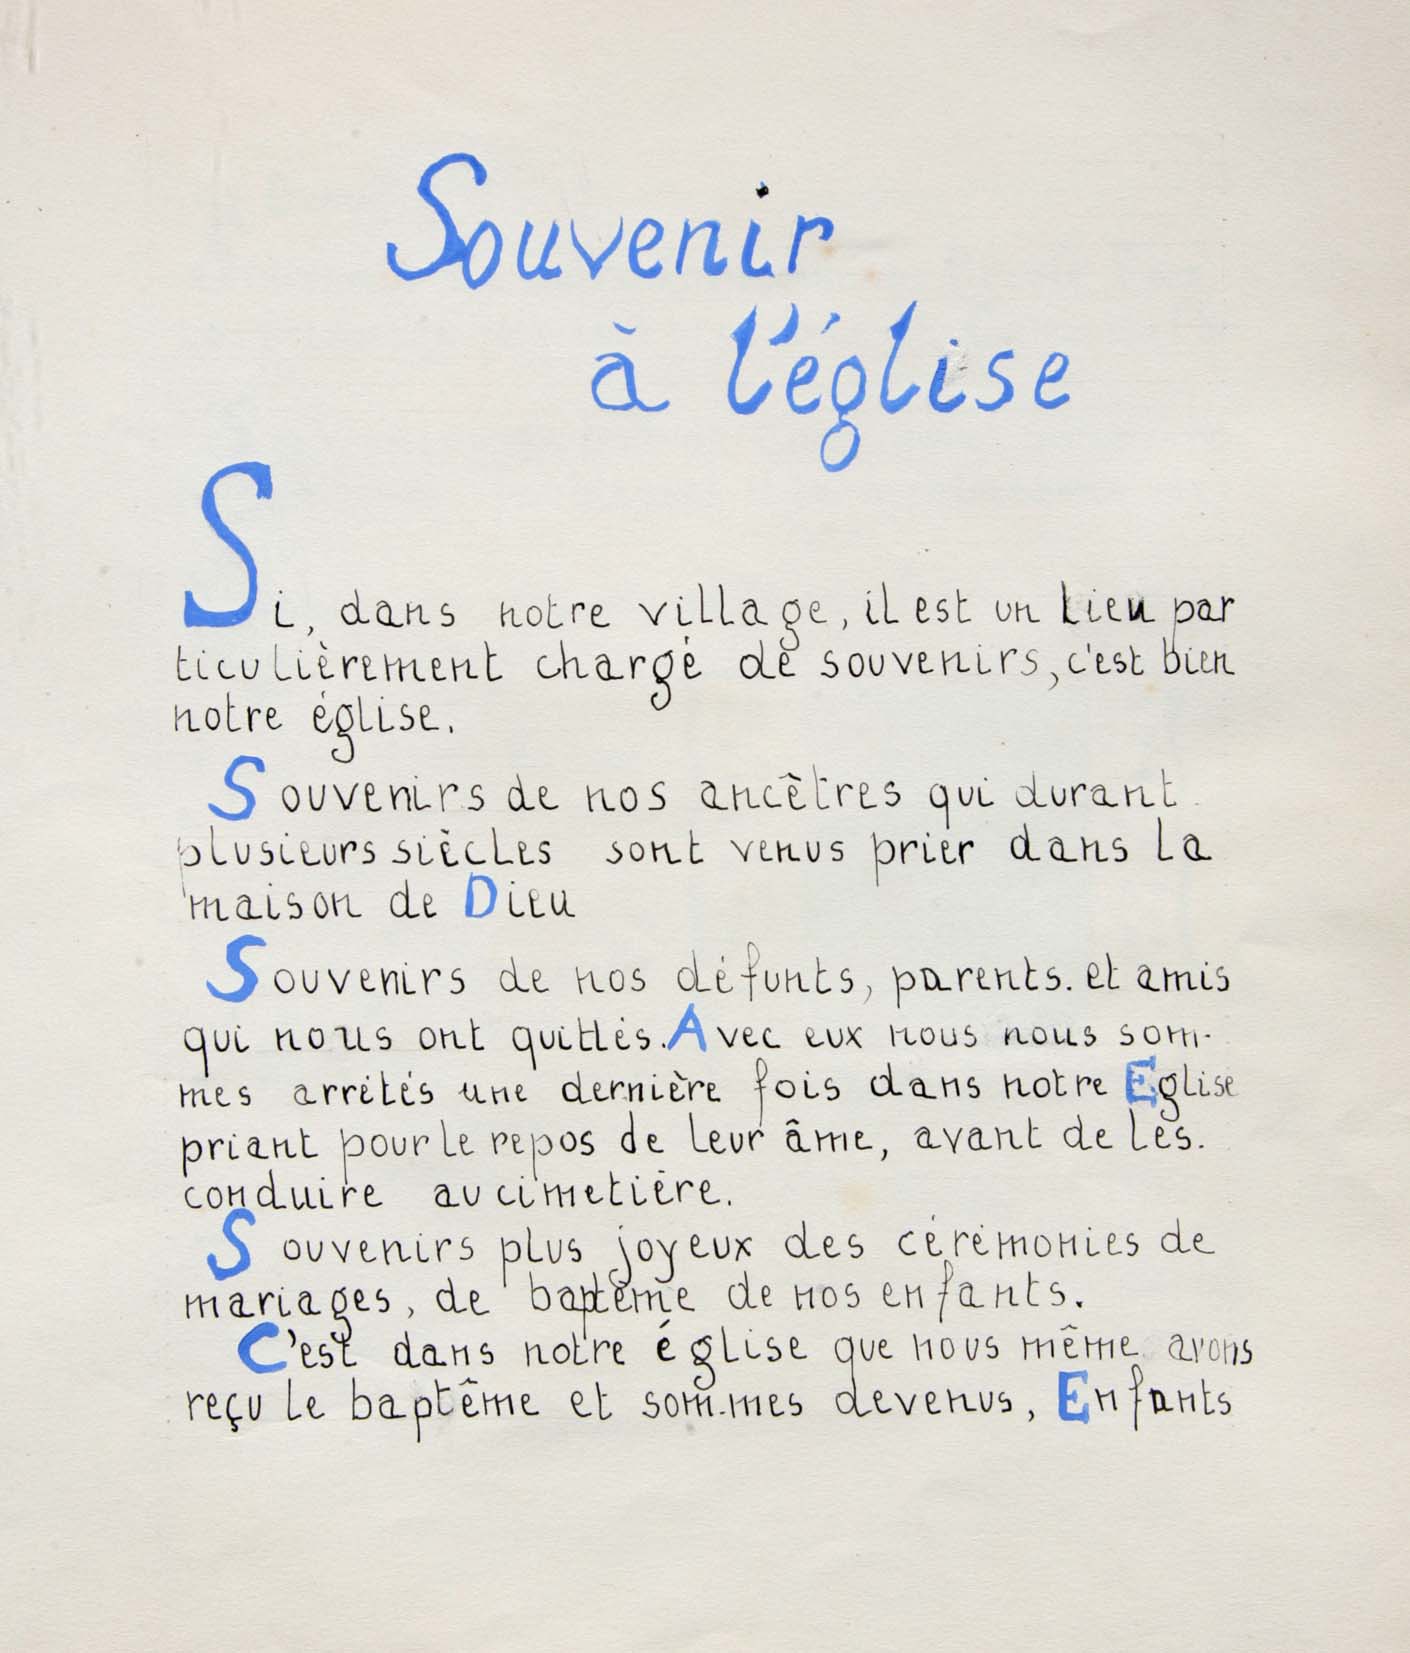 Souvenir
à l'église
Si, dans notre village, il est un lieu par
ticulièrement chargé de souvenirs, c'est bien
notre église.
Souvenirs de nos ancêtres qui durant
plusieurs siècles sont venus prier dans la
maison de Dieu
Souvenirs de nos défunts, parents. et amis
qui nous ont quittés. Avec eux nous nous som-
mes arrêtés une dernière fois dans notre Eglise
priant pour le repos de leur âme, avant de les.
conduire au cimetière.
Souvenirs plus joyeux des cérémonies de
mariages, de baptême de nos enfants.
C'est dans notre église que nous même avons
reçu le baptême et som-mes devenus, Enfants